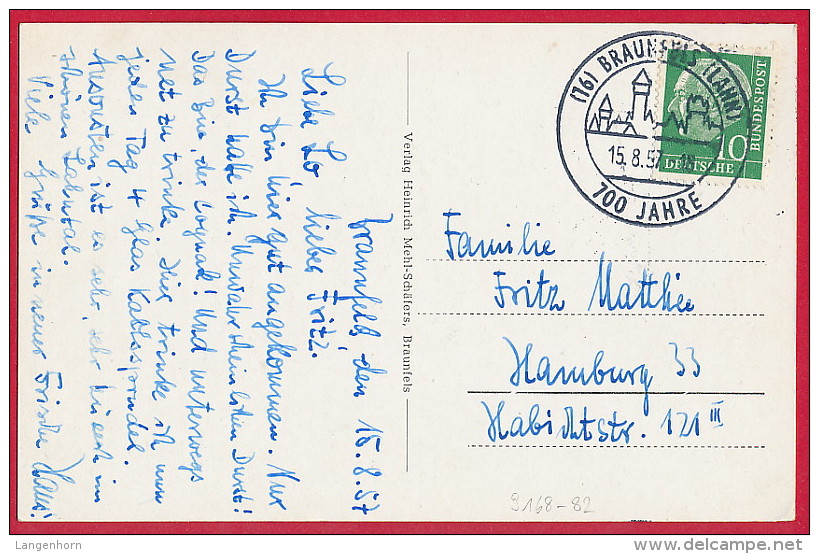 Braunfels, den 15.8.57
Liebe Lo, lieber Fritz.
Ihr bin hier gut angekommen. Nur
Durst hatte ich. Unwahrscheinlichen Durst!
Das Bier, der Cognak! Und unterwegs
zu trinken. Hier trinke ich nun
jeden Tag 4 Glas Karlssprudel.
Ansonsten ist es sehr, sehr im
schönen Lahntal.
Viele Grüße in neuer Frische Hans!
Verlag Heinrich Mehl-Schäfers, Braunfels
(16) BRAUNFELS (LAHN)
15.8.57
700 JAHRE
10
DEUTSCHE
BUNDESPOST
Familie
Fritz Matthée
Hamburg 33
Habichtstr. 121 III
9168-82
Langenhorn
www.delcampe.net